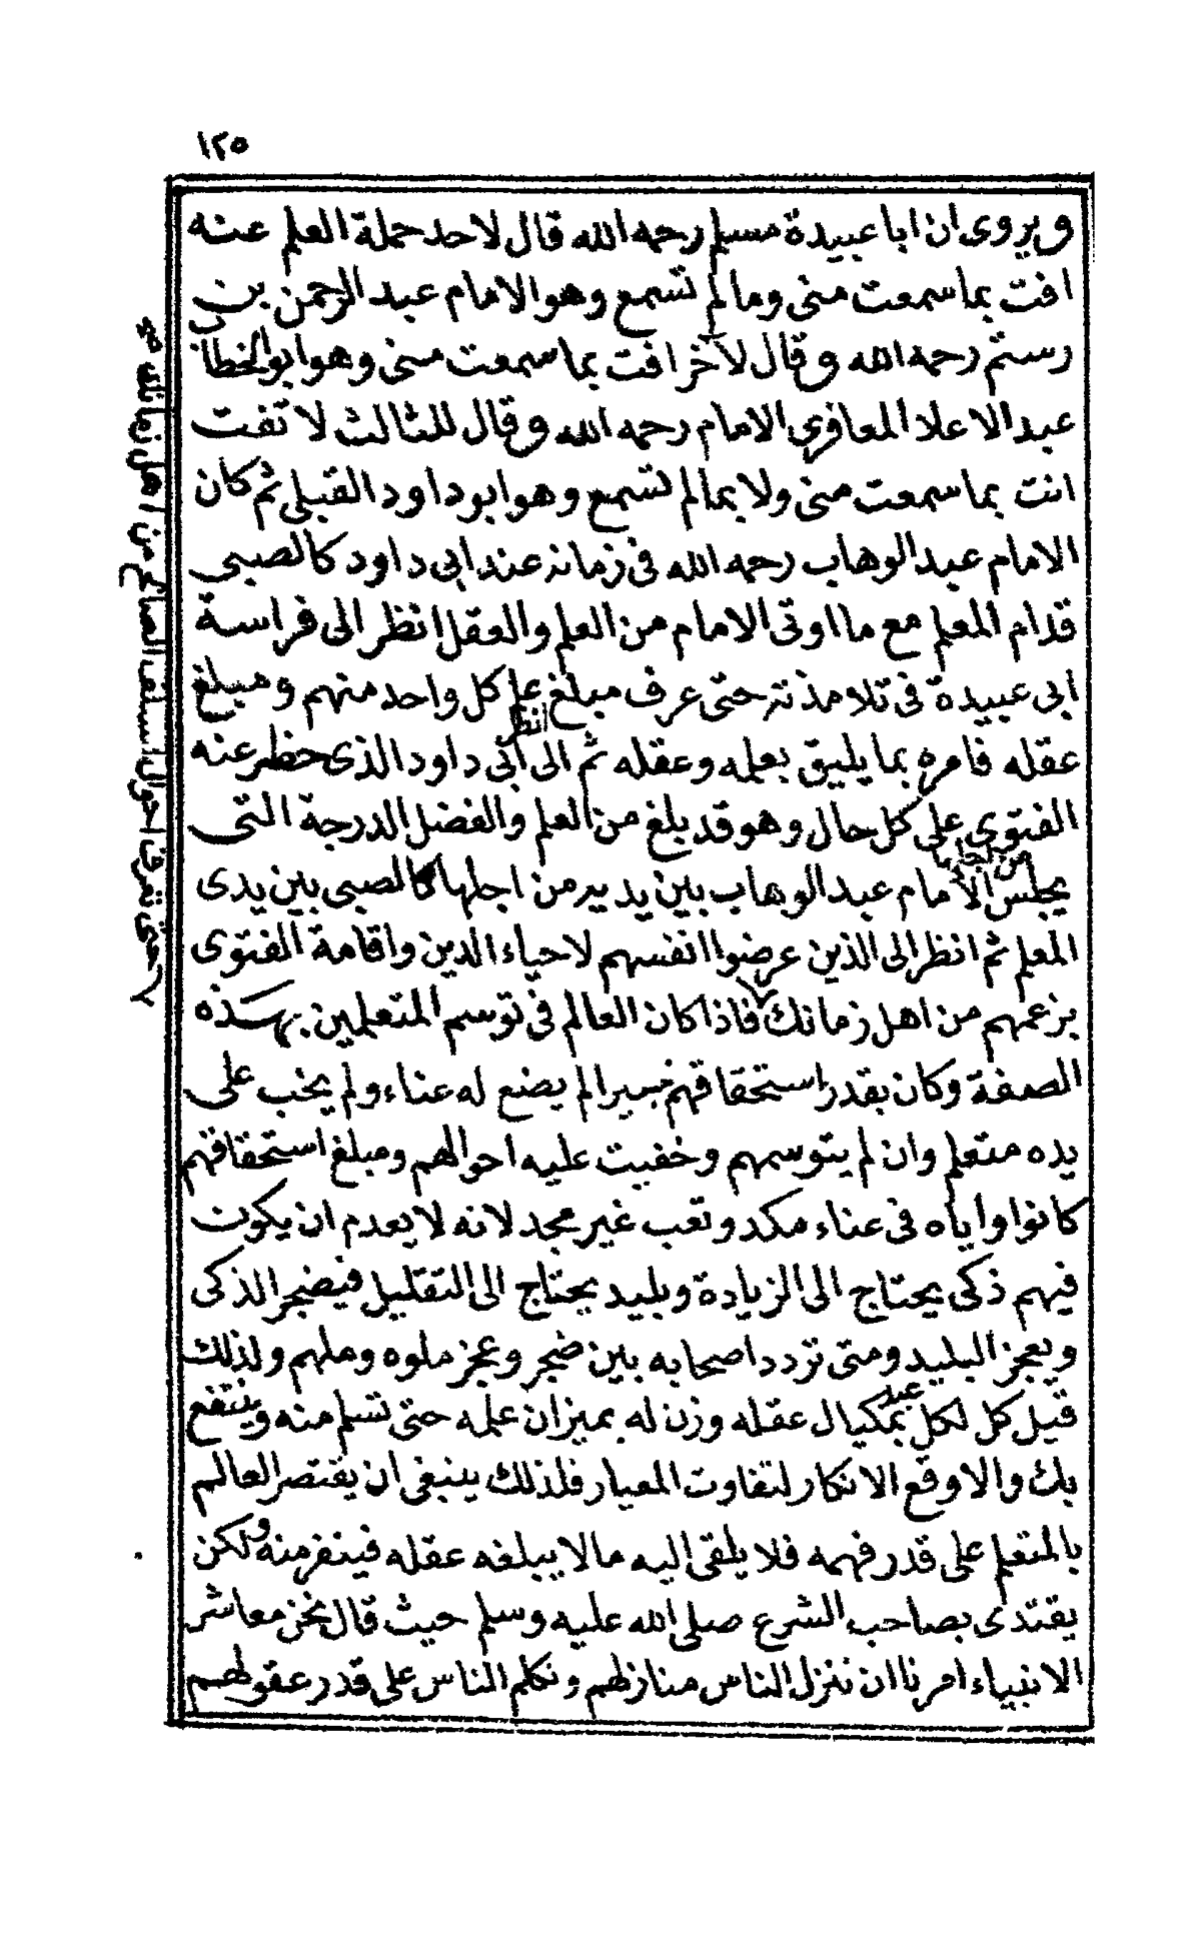 ١٢٥
ويروى ان ابا عبيدة مسلم رحمه الله قال لاحد حملة العلم عنه
افت بما سمعت منى وما لم تسمع وهو الامام عبد الرحمن بن
رستم رحمه الله وقال لآخر افت بما سمعت منى وهو ابو الخطاب
عبد الاعلا المعافرى الامام رحمه الله وقال للثالث لا تفت
انت بما سمعت منى ولا بما لم تسمع وهو ابو داود القبلى ثم كان
الامام عبد الوهاب رحمه الله فى زمانه عند ابى داود كالصبى
قدام المعلم مع ما اوتى الامام من العلم والعقل انظر الى فراسة
ابى عبيدة فى تلامذته حتى عرف مبلغ علم كل واحد منهم ومبلغ
عقله فامره بما يليق بعلمه وعقله ثم انظر الى ابى داود الذى حظر عنه
الفتوى على كل حال وهو قد بلغ من العلم والفضل الدرجة التى
من اجلها
يجلس الامام عبد الوهاب بين يديه من اجلها كالصبى بين يدى
المعلم ثم انظر الى الذين عرضوا انفسهم لاحياء الدين واقامة الفتوى
بزعمهم من اهل زمانك فاذا كان العالم فى توسم المتعلمين بهذه
الصفة وكان بقدر استحقاقهم خبيرا لم يضع له عناء ولم يخب على
يده متعلم وان لم يتوسمهم وخفيت عليه احوالهم ومبلغ استحقاقهم
كانوا واياه فى عناء مكد وتعب غير مجد لانه لا يعدم ان يكون
فيهم ذكى يحتاج الى الزيادة وبليد يحتاج الى التقليل فيضجر الذكى
ويعجز البليد ومتى تردد اصحابه بين ضجر وعجز ملوه وملهم ولذلك
قيل كل لكل عبد بمكيال عقله وزن له بميزان علمه حتى تسلم منه وينتفع
بك والا وقع الانكار لتفاوت المعيار فلذلك ينبغى ان يقتصر العالم
بالمتعلم على قدر فهمه فلا يلقى اليه ما لا يبلغه عقله فينفر منه ولكن
يقتدى بصاحب الشرع صلى الله عليه وسلم حيث قال نحن معاشر
الانبياء امرنا ان ننزل الناس منازلهم ونكلم الناس على قدر عقولهم
حتى تعرف احوال السلف الصالح من اهل زمانك صح